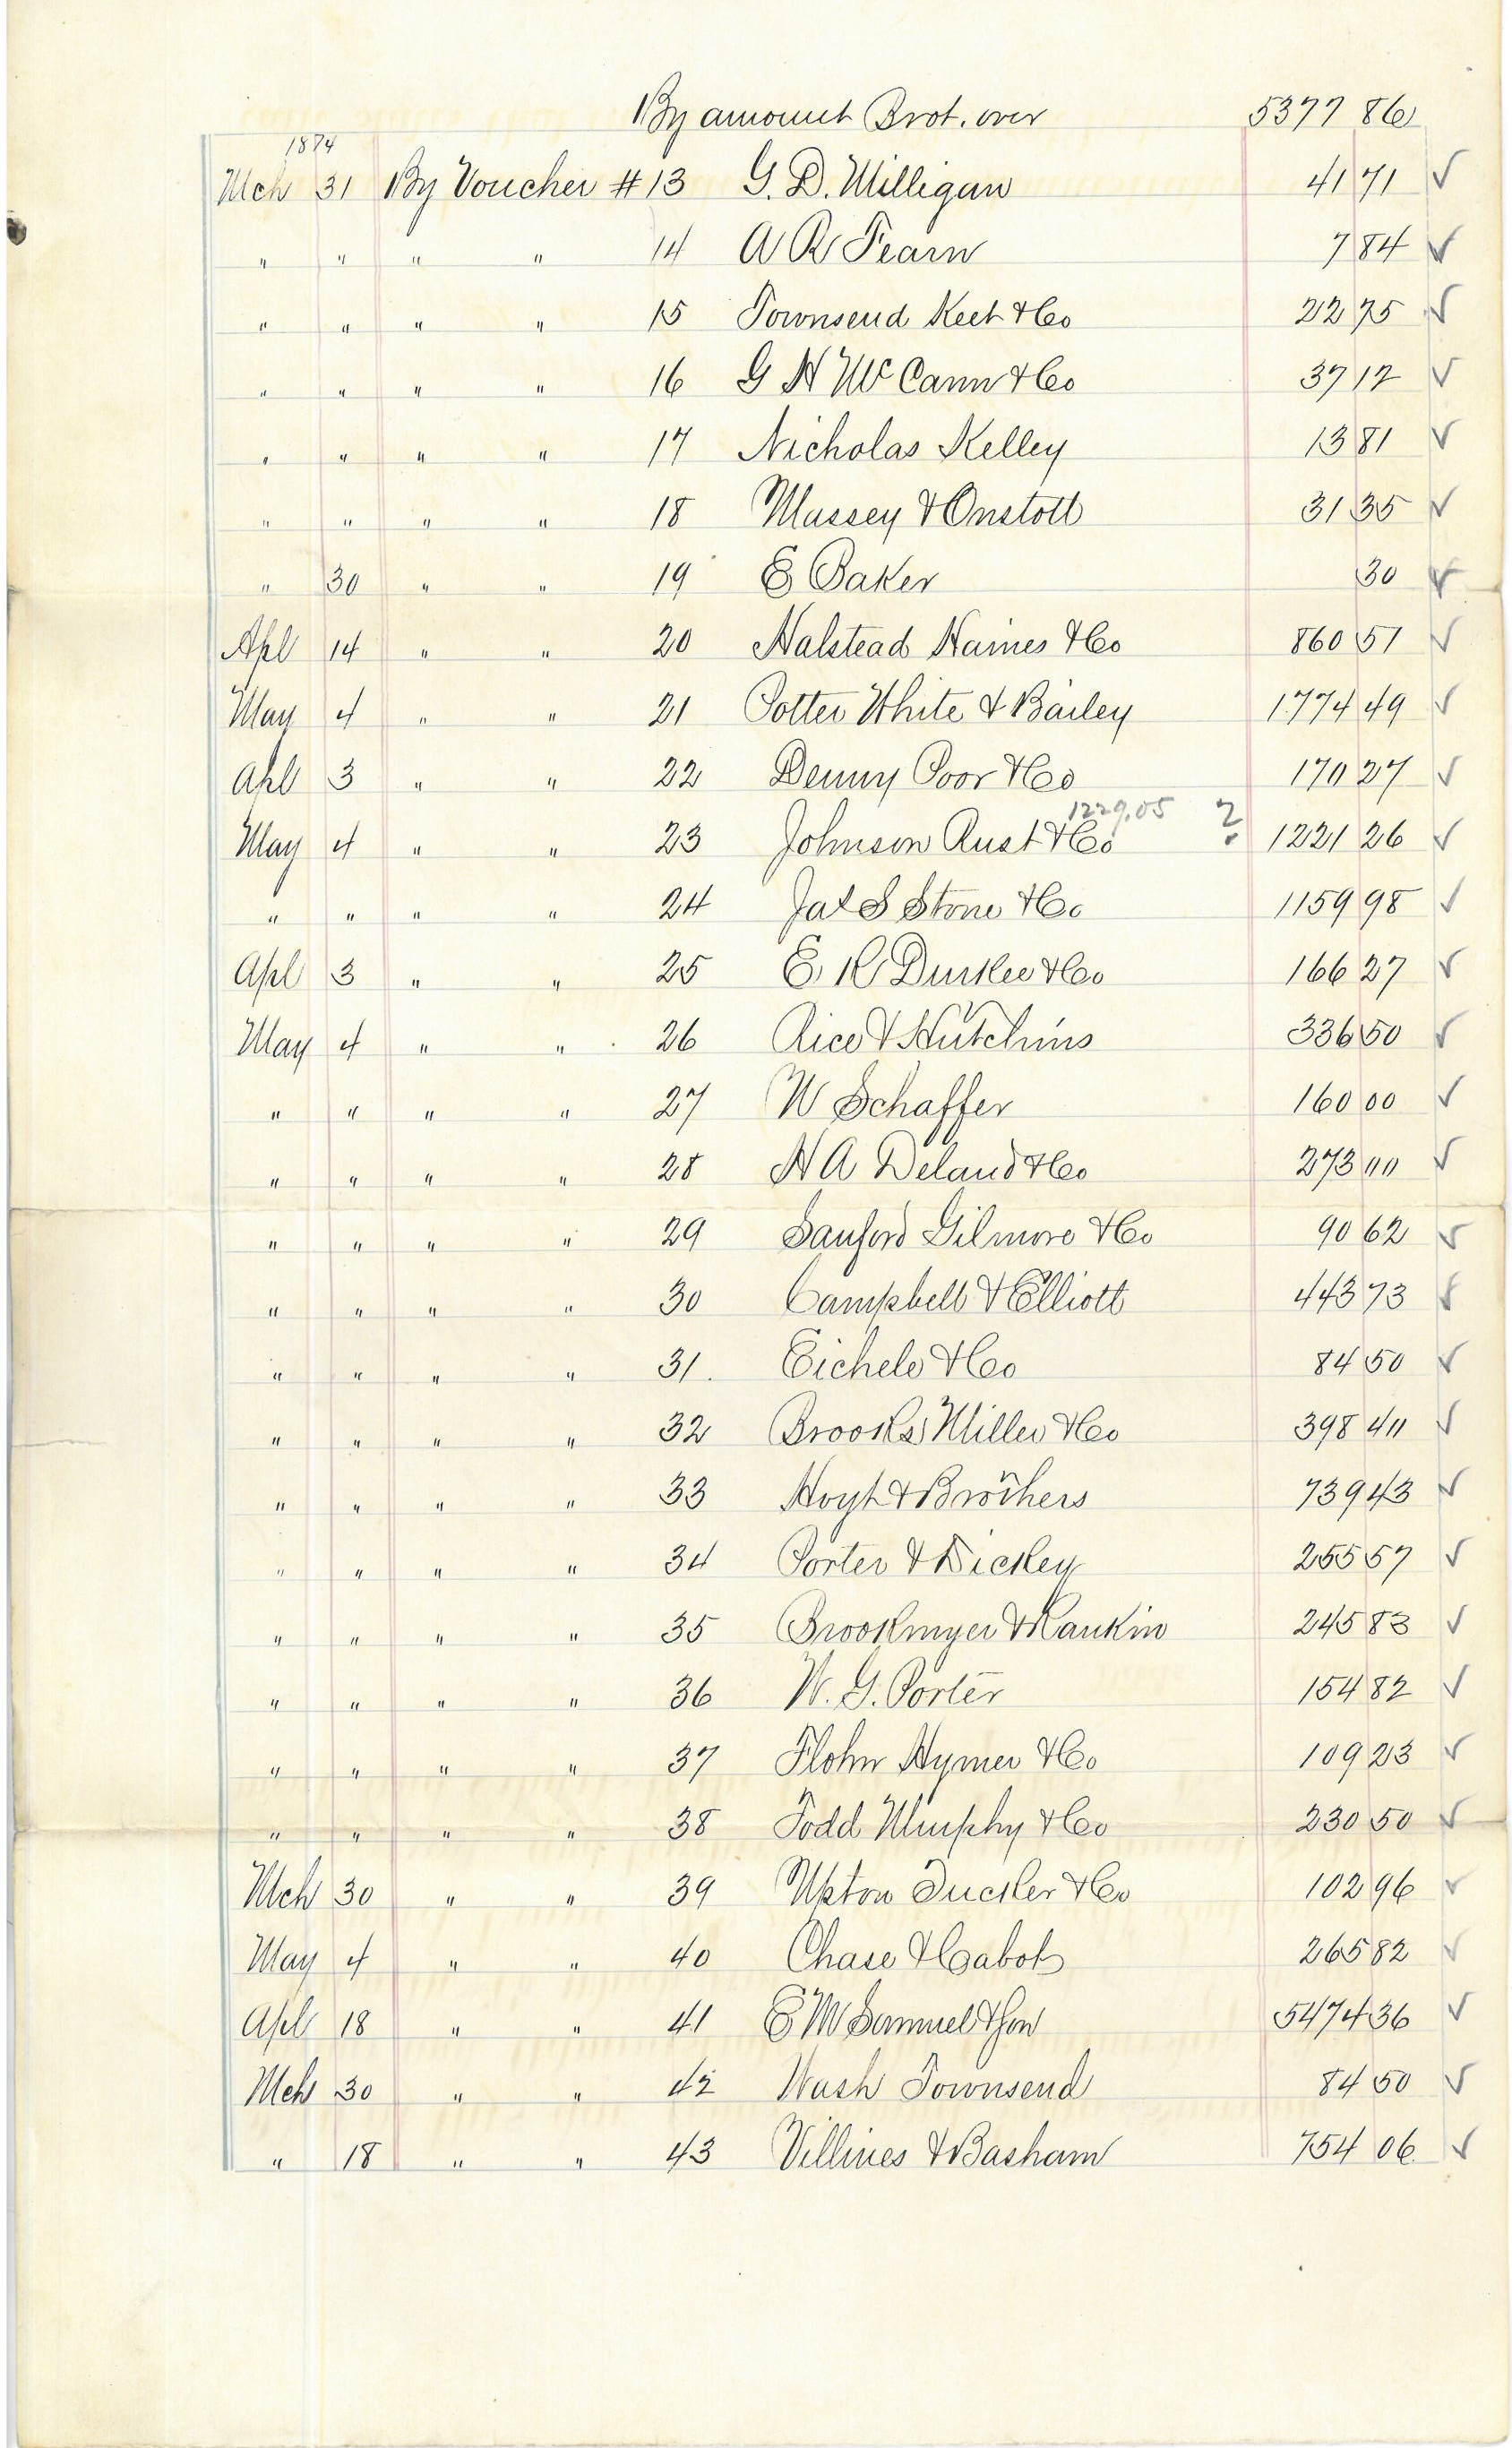 By amount Brot. over 5377 86
1874
Mch 31 By Voucher # 13 G. D. Milligan 41 71 ✓
" " " " 14 A R Fearn 7 84 ✓
" " " " 15 Townsend Keet & Co 22 75 ✓
" " " " 16 G H McCann & Co 37 12 ✓
" " " " 17 Nicholas Kelley 13 81 ✓
" " " " 18 Massey & Onstott 31 35 ✓
" 30 " " 19 E Baker 30 ✓
Apl 14 " " 20 Halstead Haines & Co 860 51 ✓
May 4 " " 21 Potter White & Bailey 1774 49 ✓
Apl 3 " " 22 Denny Poor & Co 170 27 ✓
1229.05
May 4 " " 23 Johnson Rust & Co ? 1221 26 ✓
" " " " 24 S Stone & Co 1159 98 ✓
Apl 3 " " 25 E R Durkee & Co 166 27 ✓
May 4 " " 26 Rice & Hutchins 336 50 ✓
" " " " 27 W Schaffer 160 00 ✓
" " " " 28 H A Deland & Co 273 00 ✓
" " " " 29 Sanford Gilmore & Co 90 62 ✓
" " " " 30 Campbell & Elliott 443 73 ✓
" " " " 31. Eichele & Co 84 50 ✓
" " " " 32 Brooks Miller & Co 398 40 ✓
" " " " 33 Hoyt & Brothers 739 43 ✓
" " " " 34 Porter & Dickey 255 57 ✓
" " " " 35 Brookmyer & Rankin 245 83 ✓
" " " " 36 W. G. Porter 154 82 ✓
" " " " 37 Flohr Hymer & Co 109 23 ✓
" " " " 38 Todd Murphy & Co 230 50 ✓
Mch 30 " " 39 Upton Tucker & Co 102 96 ✓
May 4 " " 40 Chase & Cabot 265 82 ✓
Apl 18 " " 41 E M Samuel & Son 5474 36 ✓
Mch 30 " " 42 Wash Townsend 84 50 ✓
" 18 " " 43 Villines & Basham 754 06 ✓